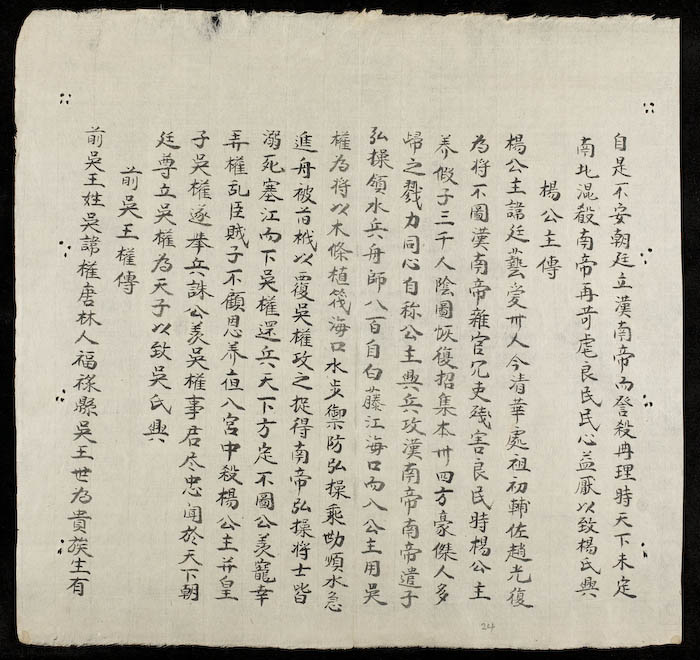 自是不安朝廷立漢南帝而登殺再理時天下未定
南北混殺南帝再苛虐良民民心益厭以致楊氏興
楊公主傳
楊公主諱廷藝愛州人今清華處祖初輔佐趙光復
為將不圖漢南帝雜官冗吏殘害良民時楊公主
養假子三千人陰圖恢復招集本州四方豪傑人多
歸之戮力同心自称公主興兵攻漢南帝南帝遣子
弘操領水兵舟師八百自白藤江海口而入公主用吳
權為將以木條植筏海口水步禦防弘操乘勛順水急
進舟被首杙以覆吳權攻之捉得南帝弘操將士皆
溺死塞江而下吳權還兵天下方定不圖公羡寵幸
弄權乱臣賊子不顧恩养直入宮中殺楊公主并皇
子吳權遂舉兵誅公羡吳權事君尽忠闻於天下朝
廷尊立吳權為天子以致吳氏興
前吳王權傳
前吳王姓吳諱權唐林人福祿縣吳王世為貴族生有
24